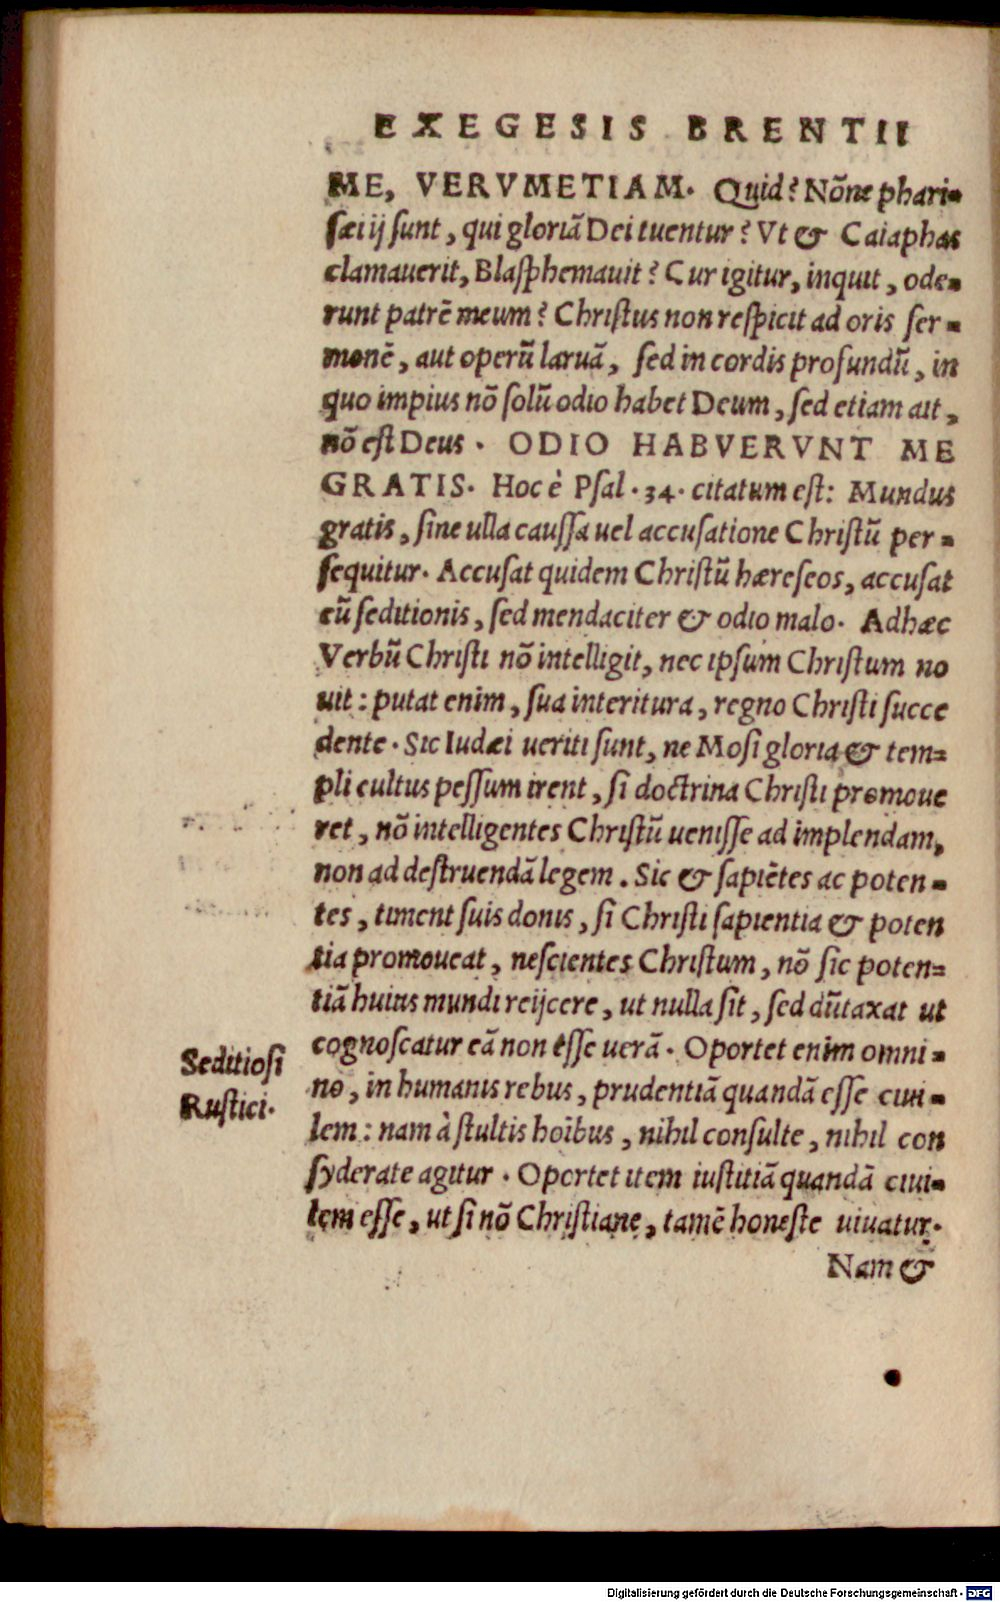 EXEGESIS BRENTII
ME, VERVMETIAM. Quid? Nōne phari-
ſæi ij ſunt, qui gloriā Dei tuentur? Vt & Caiaphas
clamauerit, Blaſphemauit? Cur igitur, inquit, ode-
runt patrē meum? Chriſtus non reſpicit ad oris ſer-
monē, aut operū laruā, ſed in cordis profundū, in
quo impius nō ſolū odio habet Deum, ſed etiam ait,
nō eſt Deus. ODIO HABVERVNT ME
GRATIS. Hoc è Pſal. 34. citatum eſt: Mundus
gratis, ſine ulla cauſſa uel accuſatione Chriſtū per-
ſequitur. Accuſat quidem Chriſtū hæreſeos, accuſat
eū ſeditionis, ſed mendaciter & odio malo. Adhæc
Verbū Chriſti nō intelligit, nec ipſum Chriſtum no
uit: putat enim, ſua interitura, regno Chriſti ſucce
dente. Sic Iudæi ueriti ſunt, ne Moſi gloria & tem-
pli cultus peſſum irent, ſi doctrina Chriſti promoue
ret, nō intelligentes Chriſtū ueniſſe ad implendam,
non ad deſtruendā legem. Sic & ſapiētes ac poten-
tes, timent ſuis donis, ſi Chriſti ſapientia & poten
tia promoueat, neſcientes Chriſtum, nō ſic poten-
tiā huius mundi reijcere, ut nulla ſit, ſed dūtaxat ut
cognoſcatur eā non eſſe uerā. Oportet enim omni-
no, in humanis rebus, prudentiā quandā eſſe ciui-
lem: nam à ſtultis hoībus, nihil conſulte, nihil con
ſyderate agitur. Oportet item iuſtitiā quandā ciui-
lem eſſe, ut ſi nō Chriſtiane, tamē honeſte uiuatur.
Nam &
Seditioſi
Ruſtici.
Digitalisierung gefördert durch die Deutsche Forschungsgemeinschaft - DFG